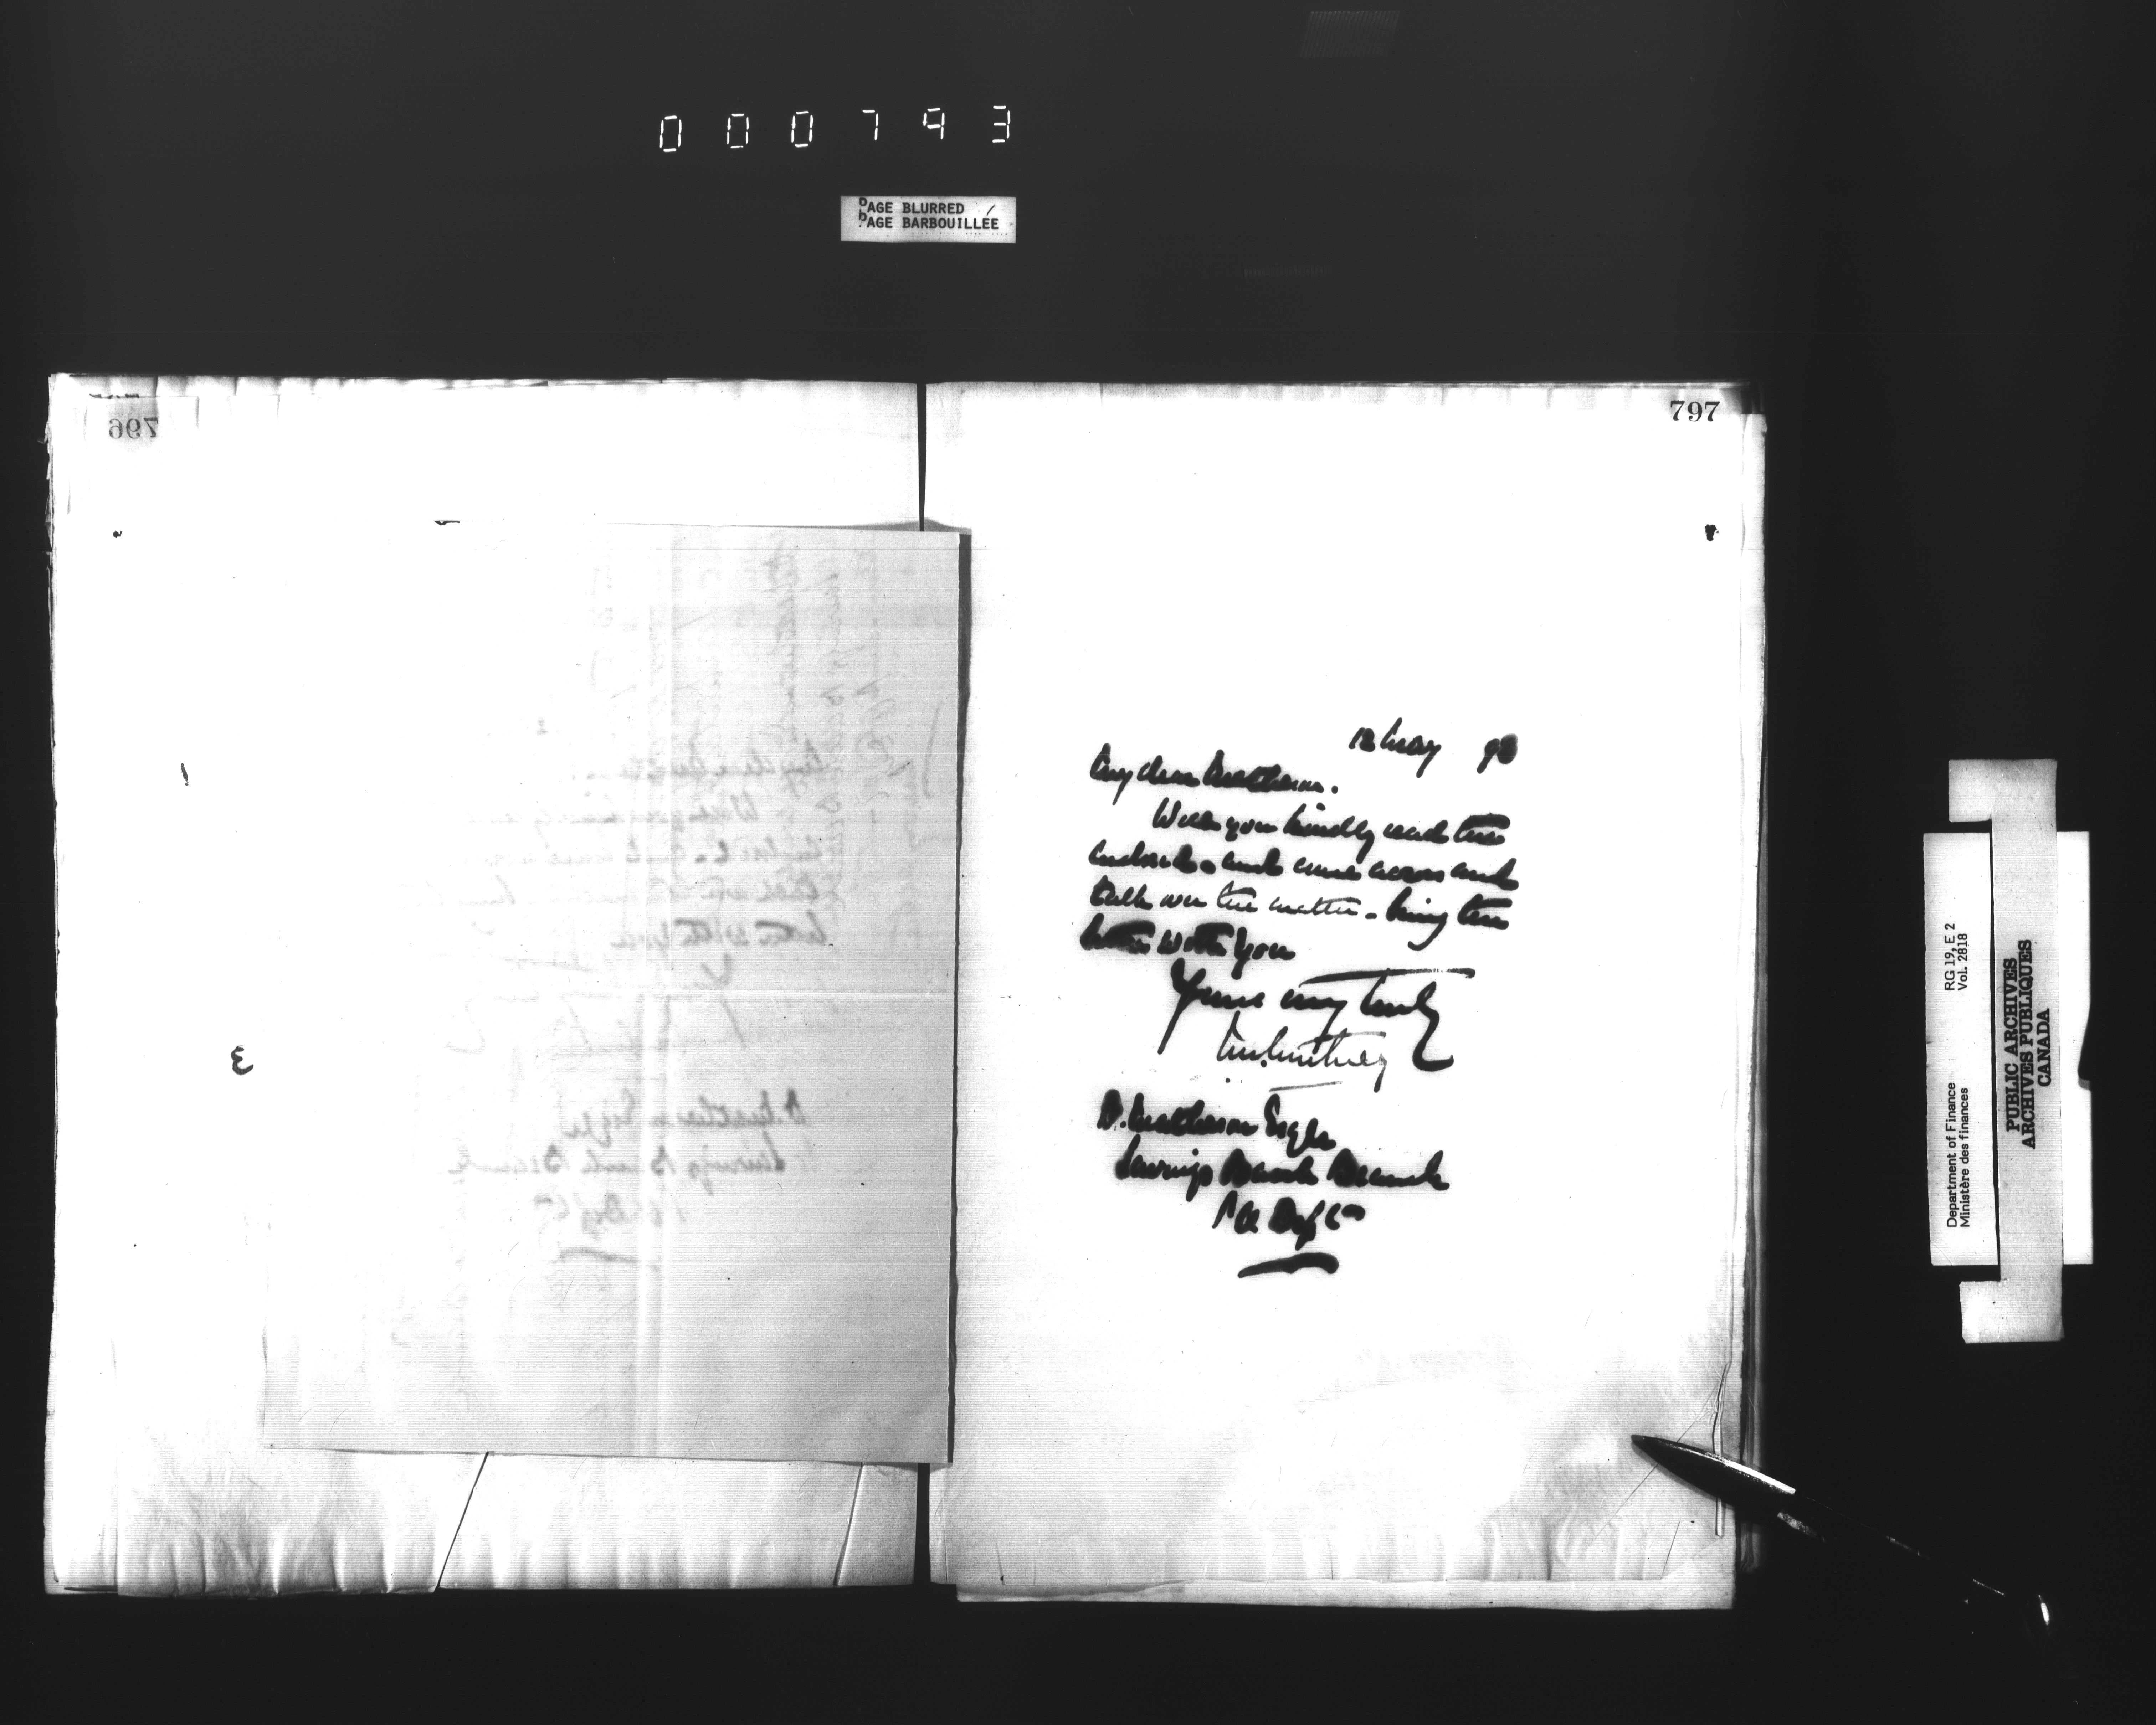 000793
PAGE BLURRED
PAGE BARBOUILLÉE
796
797
12 May 93
My dear Matheson.
Will you kindly read the
enclosed and come across and
talk over the matter - bring the
letter with you
Yours very truly
D. Matheson Esqre
Savings Bank Branch
P O Dept
Department of Finance RG 19, E 2
Ministère des finances Vol. 2818
PUBLIC ARCHIVES
ARCHIVES PUBLIQUES
CANADA